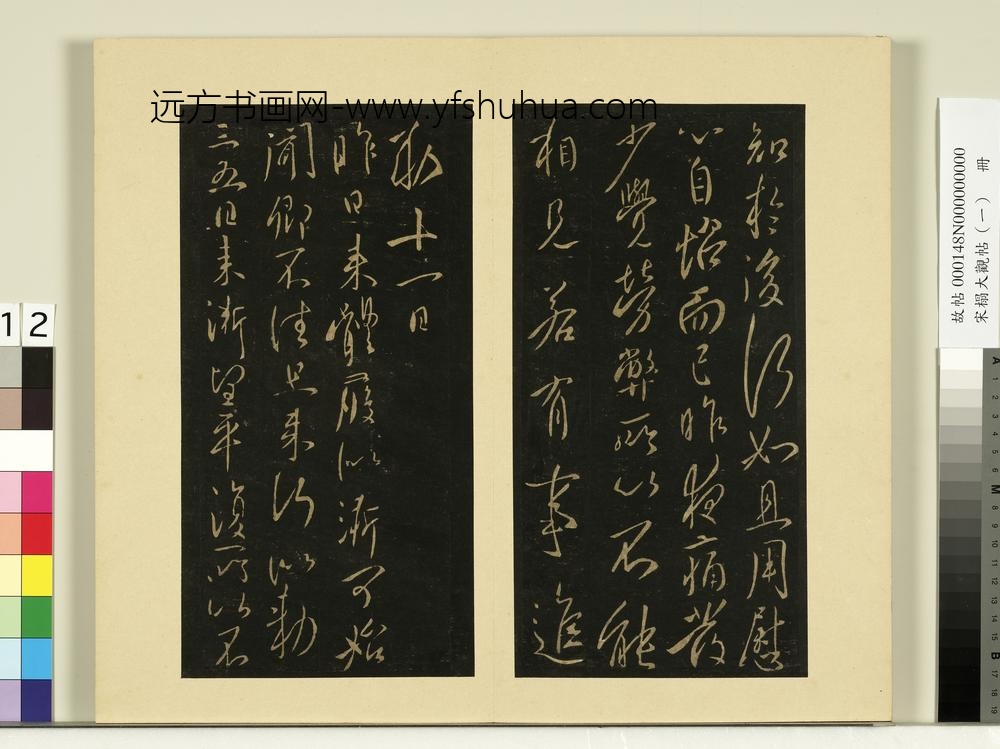 远方书画网-www.yfshuhua.com
知於後行如且用慰
心自怡而已昨夜痛發
少覺勞弊所以不能
相見若有事進
勅十一日
昨日來體履似漸可始
聞卿不佳旦來行似勅
三五日來漸望平復所以不
故帖 000148N000000000
宋搨大觀帖（一） 冊
1 2
A 1 2 3 4 5 6 M 8 9 10 11 12 13 14 15 B 17 18 19